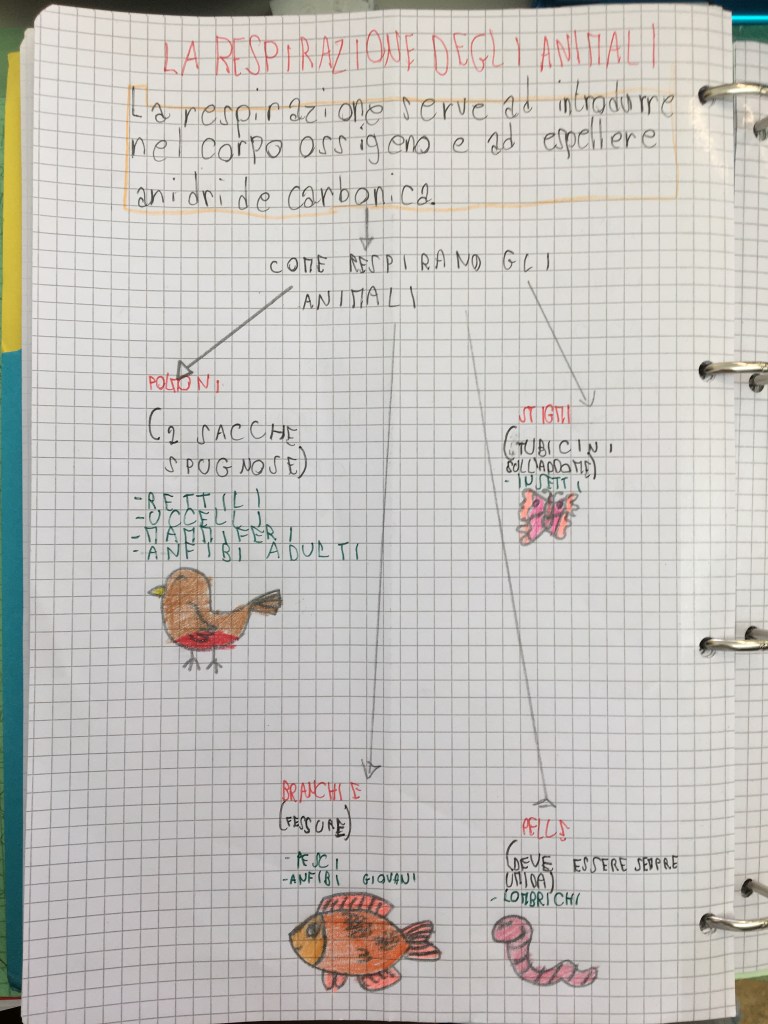 LA RESPIRAZIONE DEGLI ANIMALI
La respirazione serve ad introdurre
nel corpo ossigeno e ad espellere
anidride carbonica.
COME RESPIRANO GLI
ANIMALI
POLMONI
(2 SACCHE
SPUGNOSE)
-RETTILI
-UCCELLI
-MAMMIFERI
-ANFIBI ADULTI
STIGMI
(TUBICINI
SULL'ADDOME)
-INSETTI
BRANCHIE
(FESSURE)
-PESCI
-ANFIBI GIOVANI
PELLE
(DEVE ESSERE SEMPRE
UMIDA)
-LOMBRICHI